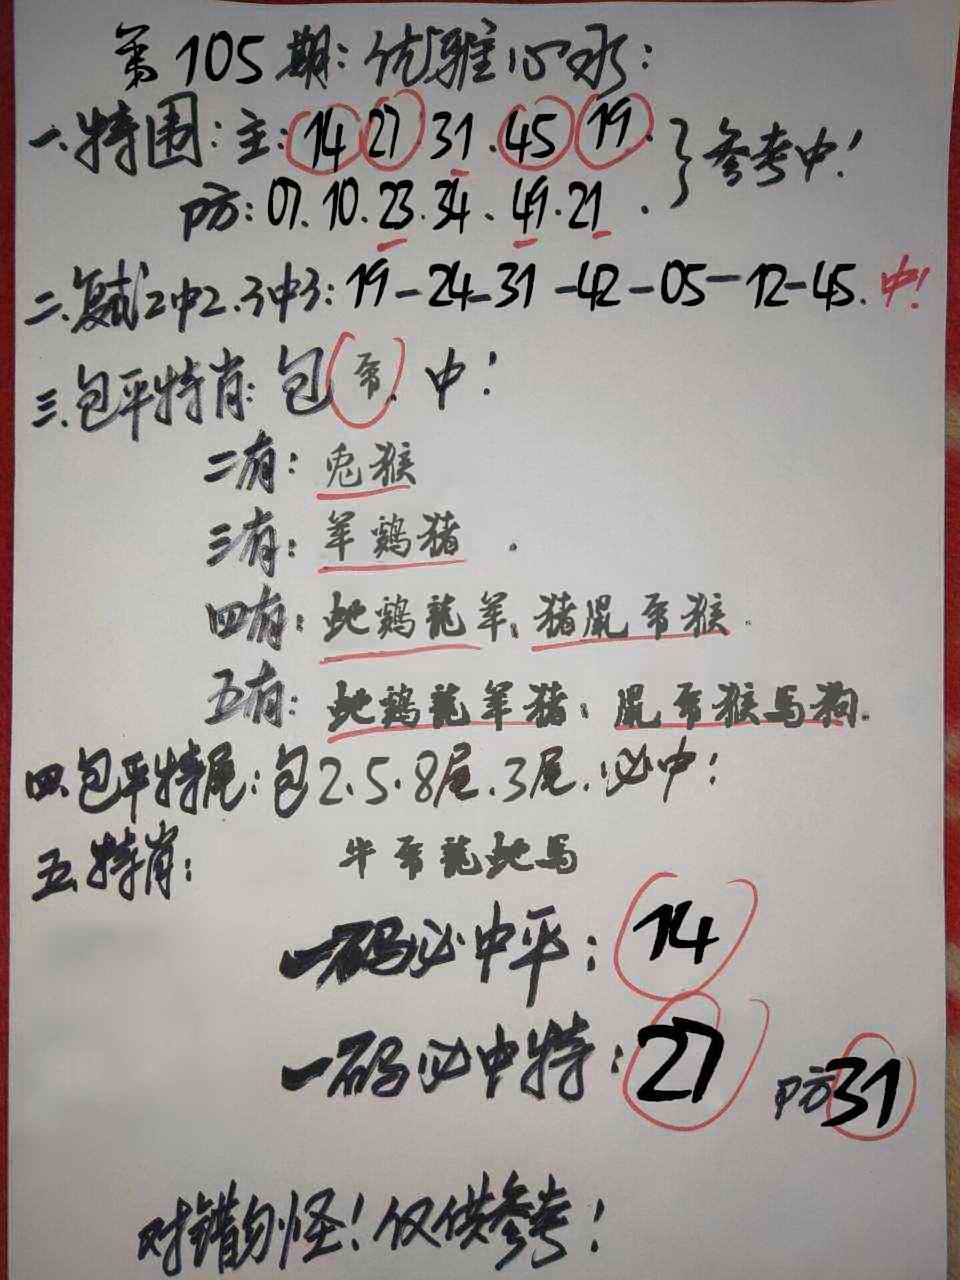 第105期:优雅心水:
一.特围:主:14 27 31.45 19. }参考中!
防:07.10.23.34.49.21.
二.复式2中2.3中3:19-24-31-42-05-12-45.中!
三.包平特肖:包虎.中!
二有:兔猴
三有:羊鸡猪.
四有:蛇鸡龍羊,猪鼠虎猴.
五有:蛇鸡龍羊猪,鼠虎猴馬狗.
四.包平特尾:包2.5.8尾.3尾.必中!
五.特肖:牛虎龍蛇馬
一码必中平:14
一码必中特:27 防31
对错勿怪!仅供参考!